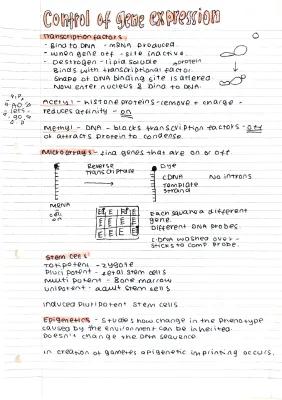 Control of gene expression
Transcription factors
- Bind to DNA - mRNA produced.
- When gene off - site inactive.
- Oestrogen - lipid soluble
protein
Binds with transcriptional factor.
Shape of DNA binding site is altered
Now enter nucleus & bind to DNA.
Acetyl - histone proteins - remove + charge -
reduces affinity - on
Methyl - DNA - blocks transcription factors - off
or attracts protein to condense.
Microarrays - find genes that are on or off.
Reverse
Transcriptase
Dye
cDNA
No introns
Template
strand
mRNA
cell
on
Each square a different
gene.
Different DNA probes.
cDNA washed over -
sticks to comp. probe.
Stem cells
Totipotent - zygote
Pluripotent - fetal stem cells
Multipotent - Bone marrow
Unipotent - adult stem cells
Induced pluripotent stem cells
Epigenetics - studies how change in the phenotype
caused by the environment can be inherited.
Doesn't change the DNA sequence.
in creation of gametes epigenetic imprinting occurs.